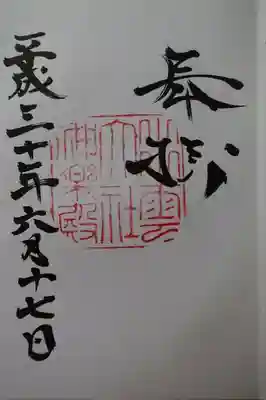 奉拝
出雲
大社
神楽殿
平成三十年六月十七日